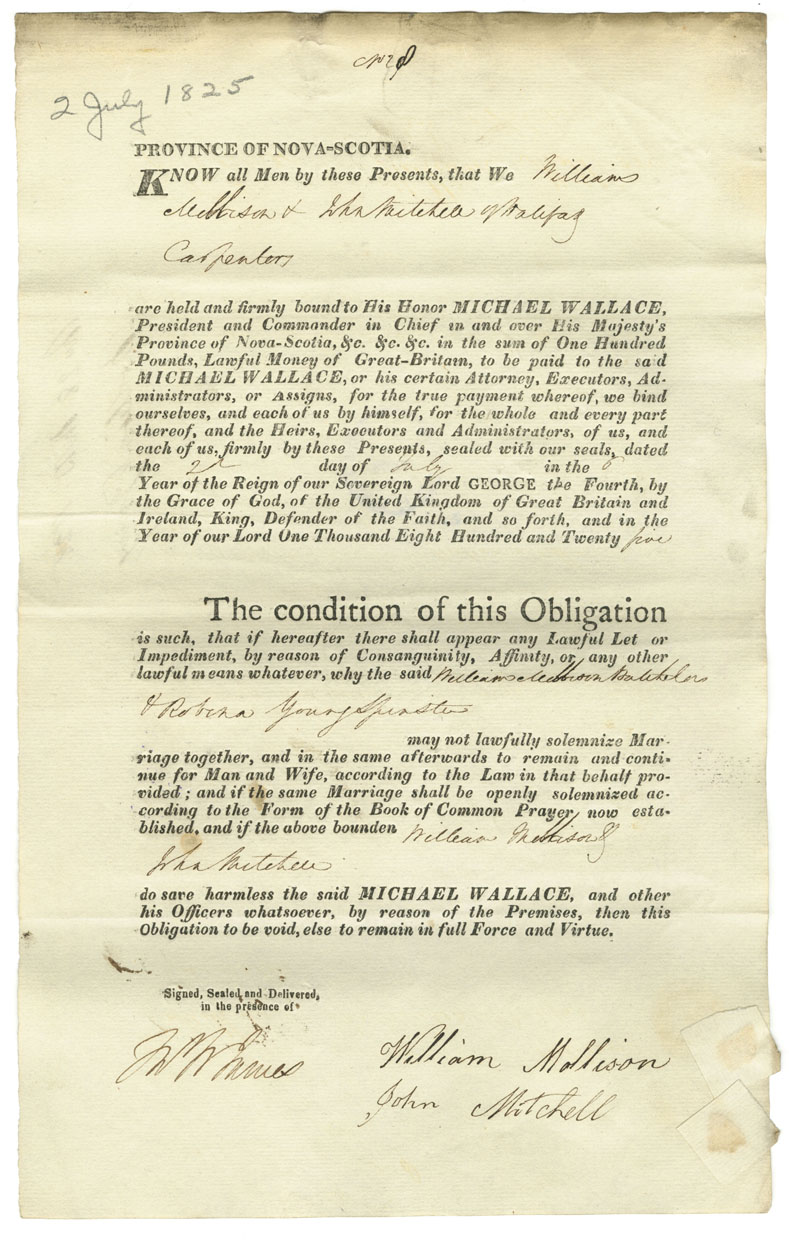 2 July 1825
PROVINCE OF NOVA-SCOTIA.
KNOW all Men by these Presents, that We William
Mollison & John Mitchell of Halifax
Carpenters
are held and firmly bound to His Honor MICHAEL WALLACE,
President and Commander in Chief in and over His Majesty's
Province of Nova-Scotia, &c. &c. &c. in the sum of One Hundred
Pounds, Lawful Money of Great-Britain, to be paid to the said
MICHAEL WALLACE, or his certain Attorney, Executors, Ad-
ministrators, or Assigns, for the true payment whereof, we bind
ourselves, and each of us by himself, for the whole and every part
thereof, and the Heirs, Executors and Administrators, of us, and
each of us, firmly by these Presents, sealed with our seals, dated
the 2d day of July in the 6
Year of the Reign of our Sovereign Lord GEORGE the Fourth, by
the Grace of God, of the United Kingdom of Great Britain and
Ireland, King, Defender of the Faith, and so forth, and in the
Year of our Lord One Thousand Eight Hundred and Twenty five
The condition of this Obligation
is such, that if hereafter there shall appear any Lawful Let or
Impediment, by reason of Consanguinity, Affinity, or any other
lawful means whatever, why the said William Mollison Batchelor
& Robina Young Spinster
may not lawfully solemnize Mar-
riage together, and in the same afterwards to remain and conti-
nue for Man and Wife, according to the Law in that behalf pro-
vided; and if the same Marriage shall be openly solemnized ac-
cording to the Form of the Book of Common Prayer now esta-
blished, and if the above bounden William Mollison &
John Mitchell
do save harmless the said MICHAEL WALLACE, and other
his Officers whatsoever, by reason of the Premises, then this
Obligation to be void, else to remain in full Force and Virtue.
Signed, Sealed and Delivered,
in the presence of
William Mollison
John Mitchell